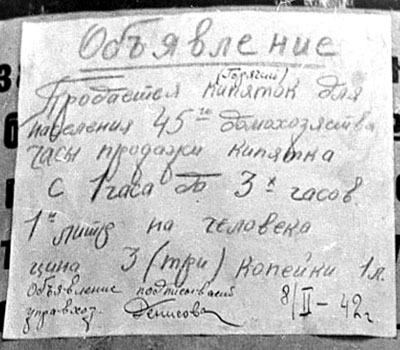 Объявление
(Горячий)
Продается кипяток для
населения 45го домохозяйства
Часы продажи кипятка
С 1 часа до 3х часов
1н литр на человека
цина 3 (три) копейки 1 л.
Объявление подписвает
управхоз. Денисова 8/II-42г